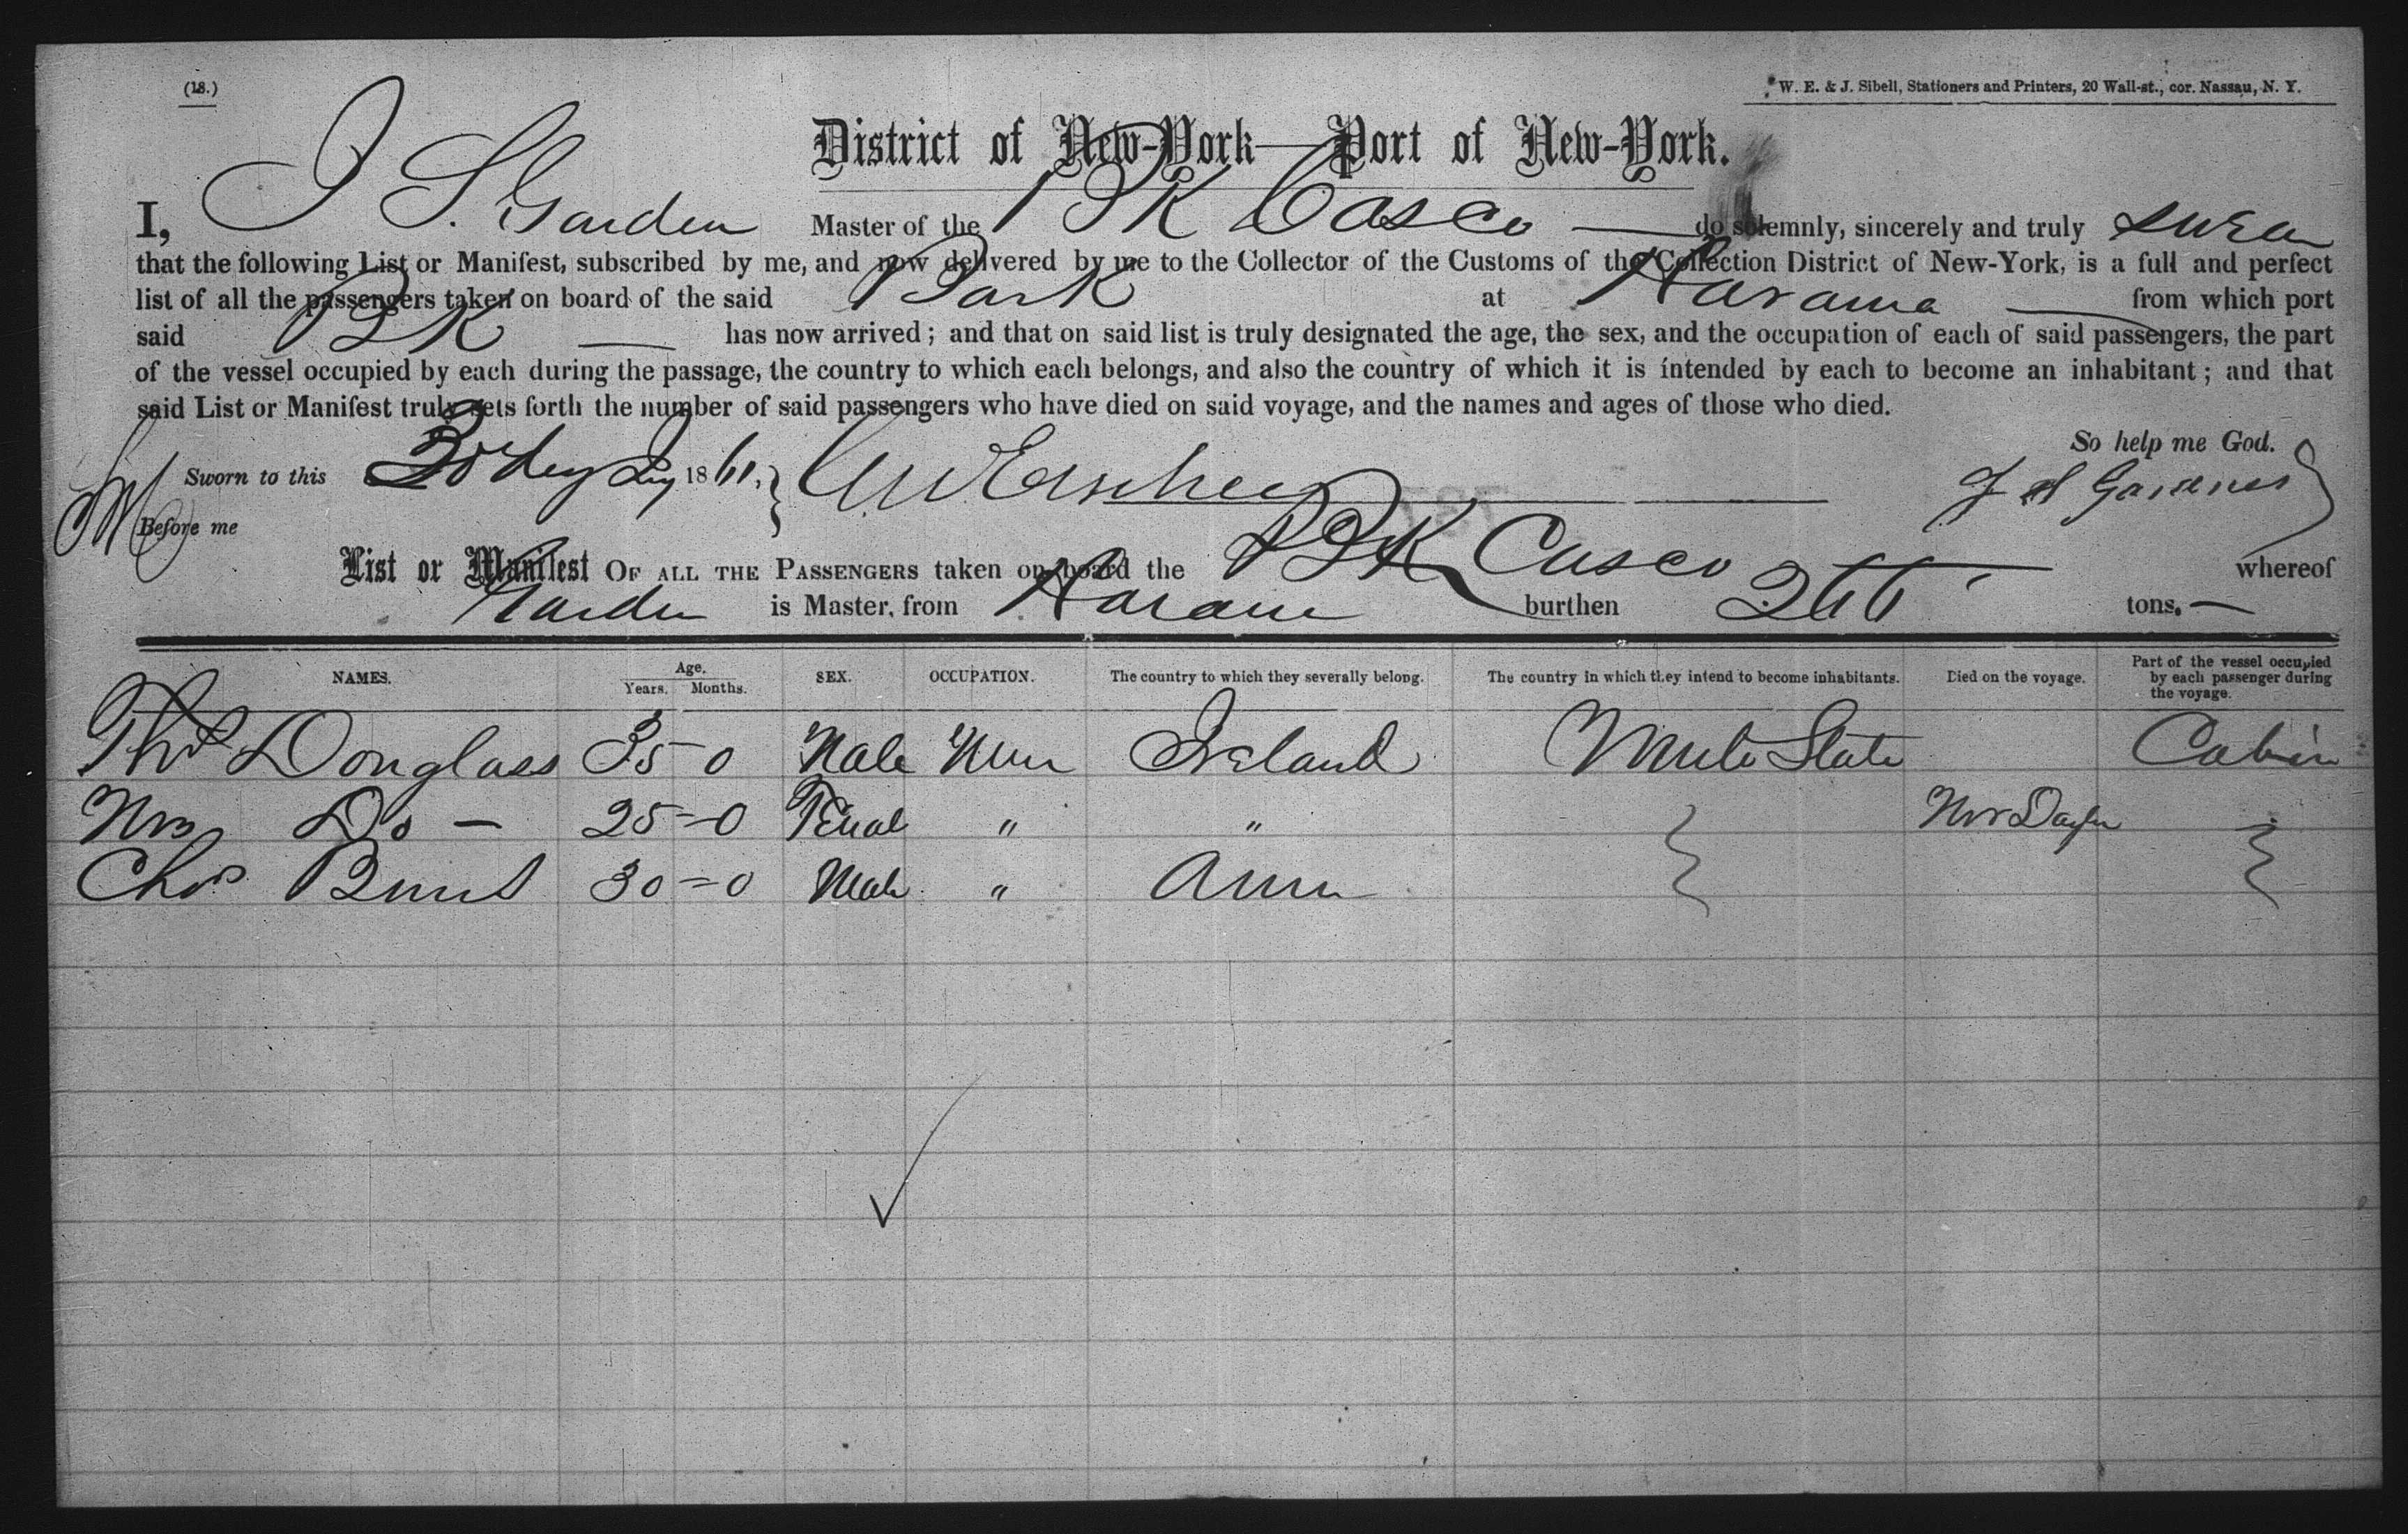 (18.)
W. E. & J. Sibell, Stationers and Printers, 20 Wall-st., cor. Nassau, N. Y.
District of New-York—Port of New-York.
I, J S. Garden Master of the BK Casco do solemnly, sincerely and truly swear
that the following List or Manifest, subscribed by me, and now delivered by me to the Collector of the Customs of the Collection District of New-York, is a full and perfect
list of all the passengers taken on board of the said Bark at Havana from which port
said BK has now arrived; and that on said list is truly designated the age, the sex, and the occupation of each of said passengers, the part
of the vessel occupied by each during the passage, the country to which each belongs, and also the country of which it is intended by each to become an inhabitant; and that
said List or Manifest truly sets forth the number of said passengers who have died on said voyage, and the names and ages of those who died.
So help me God.
Sworn to this 30 day 1861, J S Gardner
Before me
List or Manifest OF ALL THE PASSENGERS taken on board the BK Casco whereof
Garden is Master, from Havana burthen 266 tons.
NAMES. Age. Years. Months. SEX. OCCUPATION. The country to which they severally belong. The country in which they intend to become inhabitants. Died on the voyage. Part of the vessel occupied by each passenger during the voyage.
Thos Douglass 35-0 Male Ireland State Cabin
Mrs Do — 25-0 Femal " "
Chas 30-0 Male "